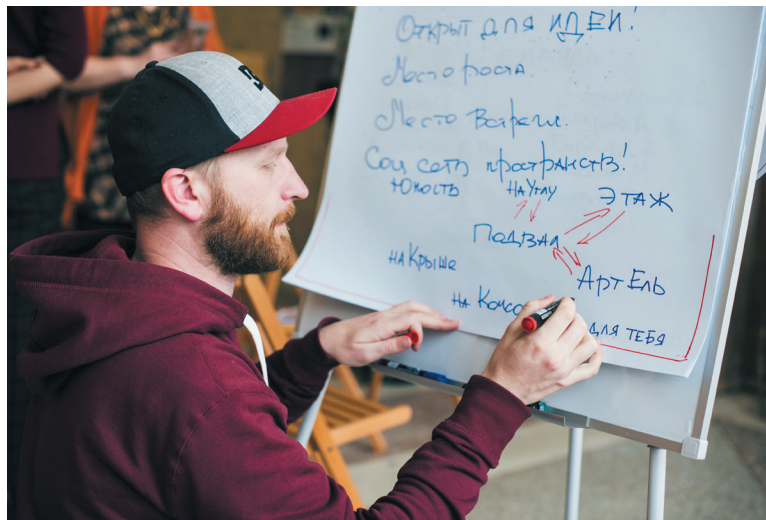 Открыт для ИДЕЙ!
Место роста.
Место Встречи.
Соц сеть пространств!
Юность НА Углу ЭТАЖ
Подвал
НА Крыше
АртЕль
НА
ДЛЯ ТЕБЯ